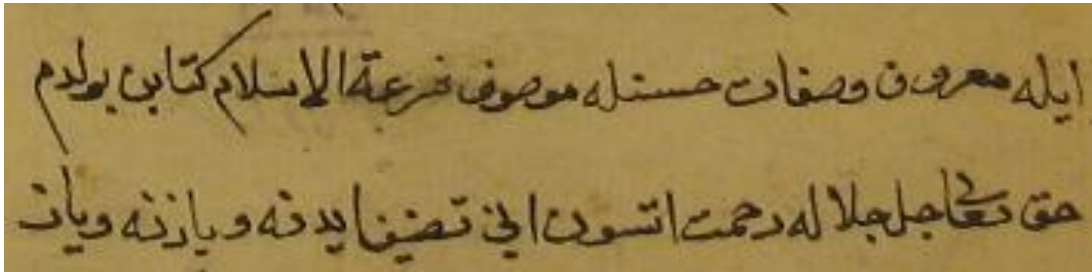 ايله معروف وصفات حسنله موصوف شرعة الاسلام كتابن بولدم
حق تعالى جل جلاله رحمت اتسون انى تصنيف ايدنه و يازنه و يازد